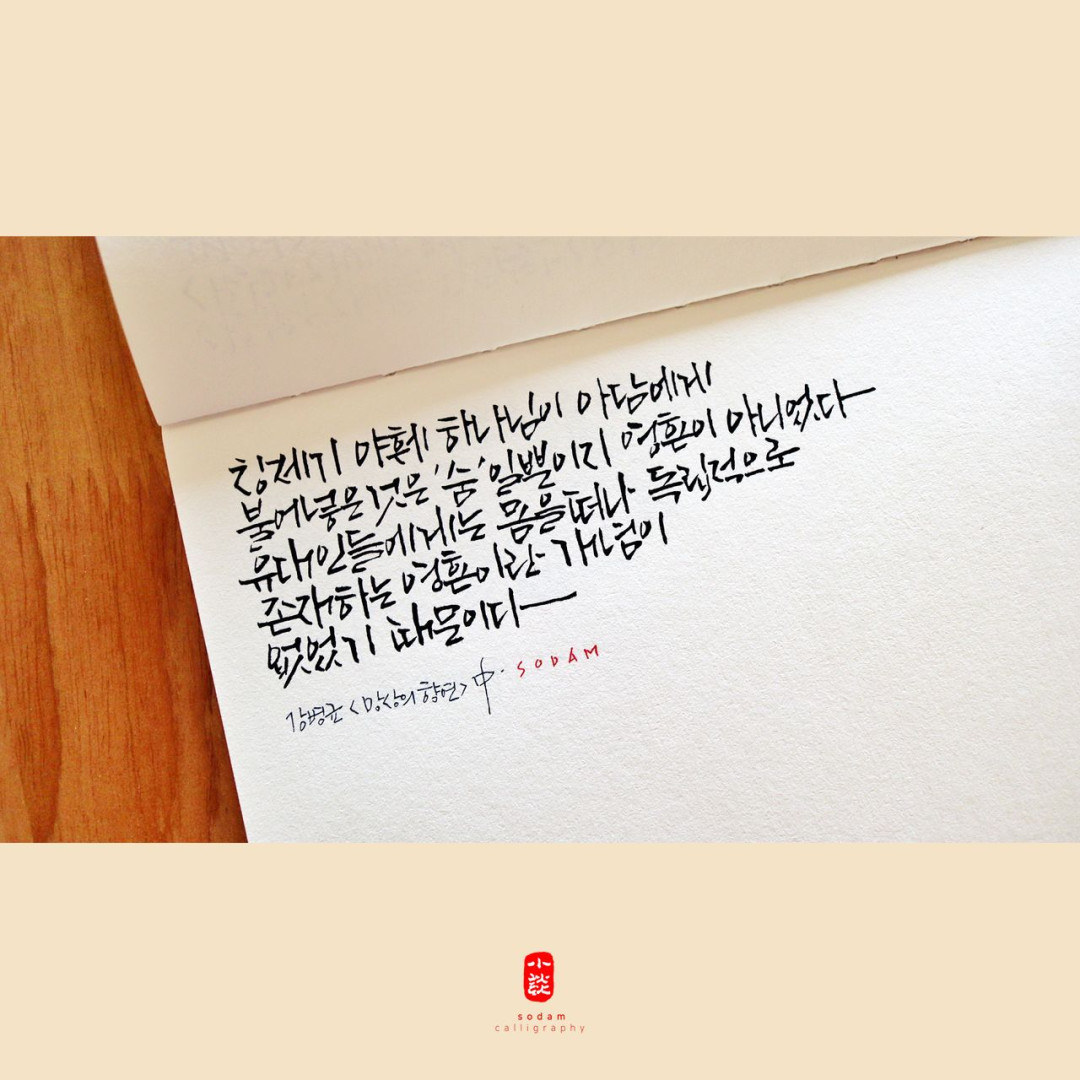 창제기 야훼 하나님이 아담에게
불어넣은 것은 '숨'일뿐이지 영혼이 아니었다
유대인들에게는 몸을 떠나 독립적으로
존재하는 영혼이란 개념이
없었기 때문이다
강병균 <망상의 향연> 中. SODAM
小談
sodam
calligraphy